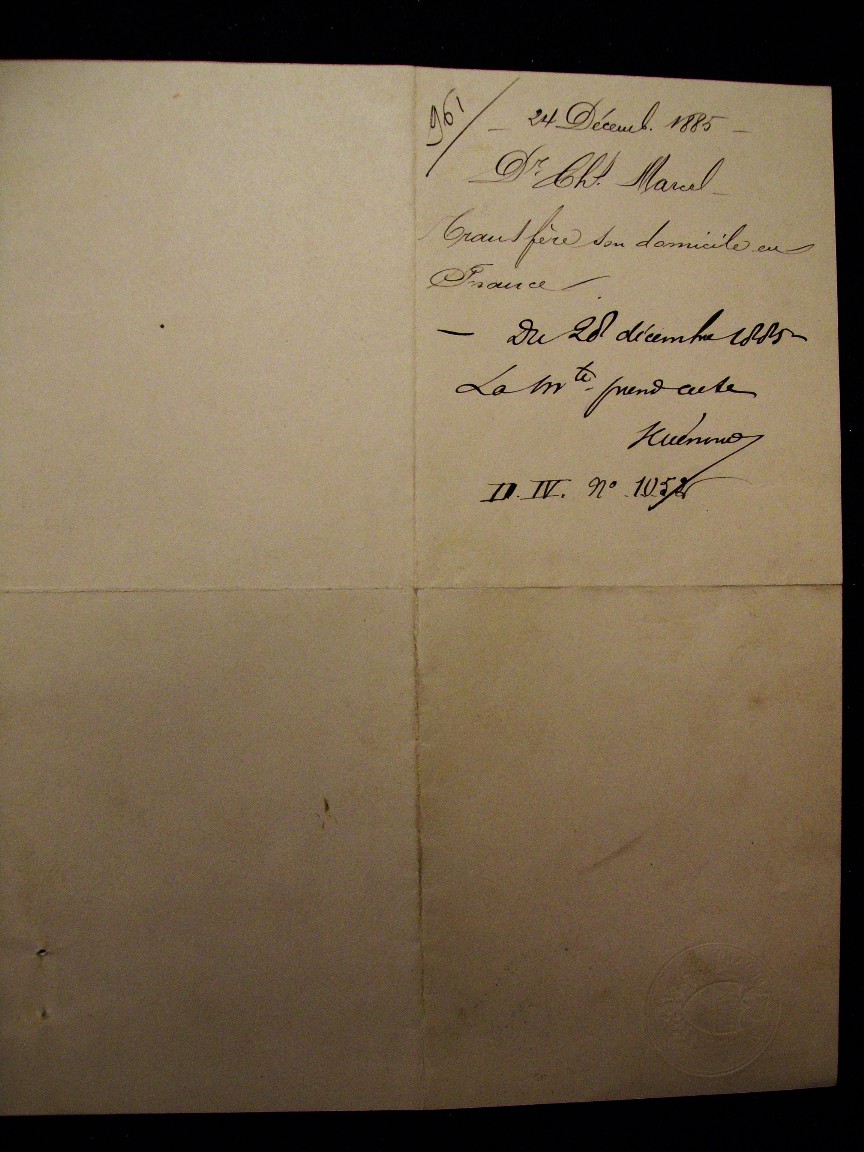 961/ — 24 Décemb. 1885 —
Dr. Chs. Marcel
transfère son domicile en
France
— Du 28 décembre 1885
La Mté. prend acte
II. IV. No. 1052